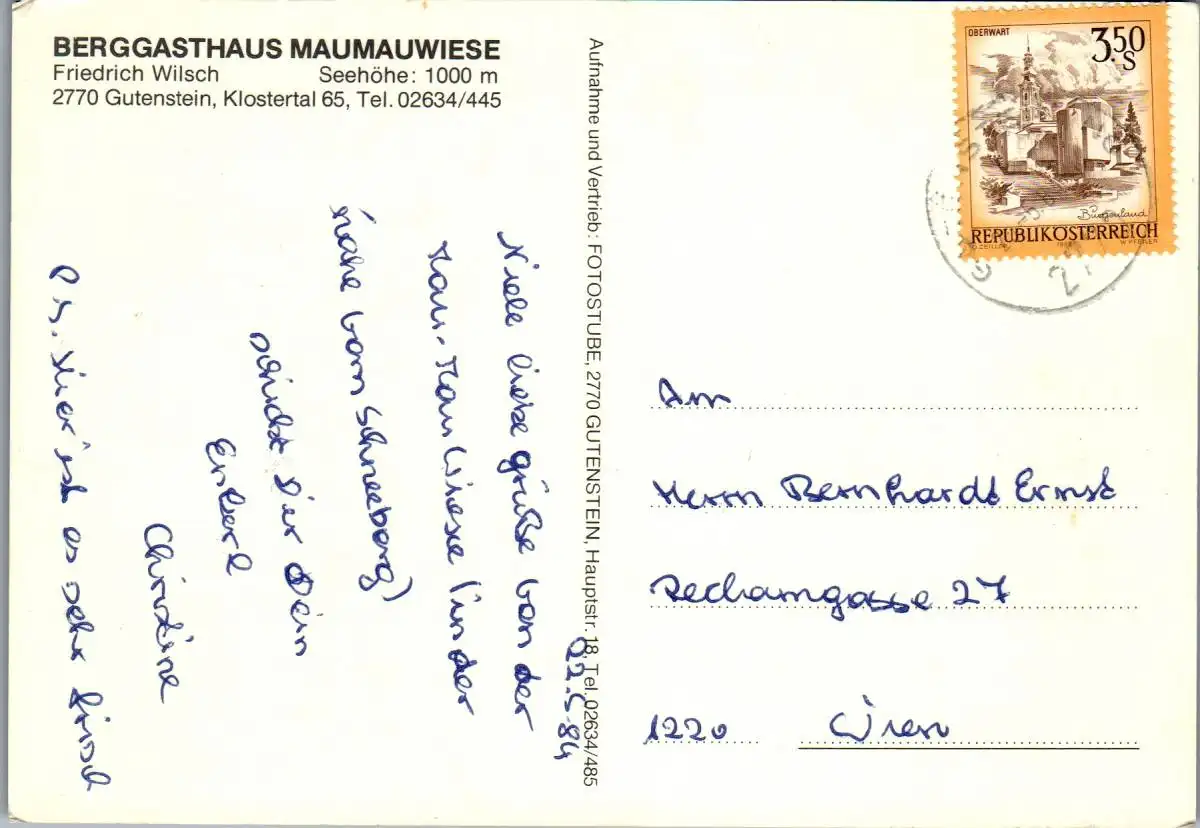 BERGGASTHAUS MAUMAUWIESE
Friedrich Wilsch Seehöhe: 1000 m
2770 Gutenstein, Klostertal 65, Tel. 02634/445
22.5.84
Viele liebe grüße von der
Mau-Mau Wiese (in der
Nähe vom Schneeberg)
schickt Dir Dein
Enkerl
Christine
P.S. Hier ist es sehr frisch
Aufnahme und Vertrieb: FOTOSTUBE, 2770 GUTENSTEIN, Hauptstr. 18, Tel. 02634/485
OBERWART
3.50
S
Burgenland
REPUBLIK ÖSTERREICH
O. ZEILLER W. PFEILER
An
Herrn Bernhardt Ernst
27
1220 Wien